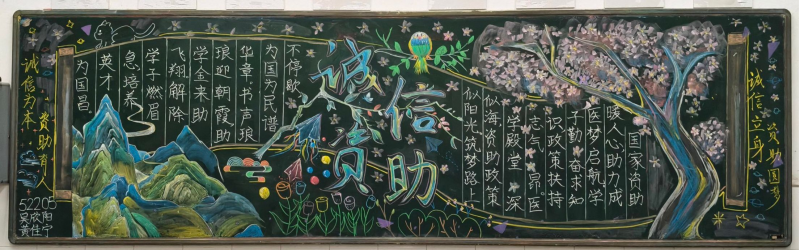 诚信资助
诚信立身
资助圆梦
国家资助
暖人心助力成
医梦启航学
子勤奋求知
识政策扶持
志气昂医
学殿堂 深
似海资助政策
似阳光筑梦路上
不停歇
为国为民谱
华章书声琅
琅迎朝霞助
学金来助
飞翔解除
学子燃眉
急培养
英才
为国昌
诚信为本
资助育人
52205
吴欣阳
黄佳宁